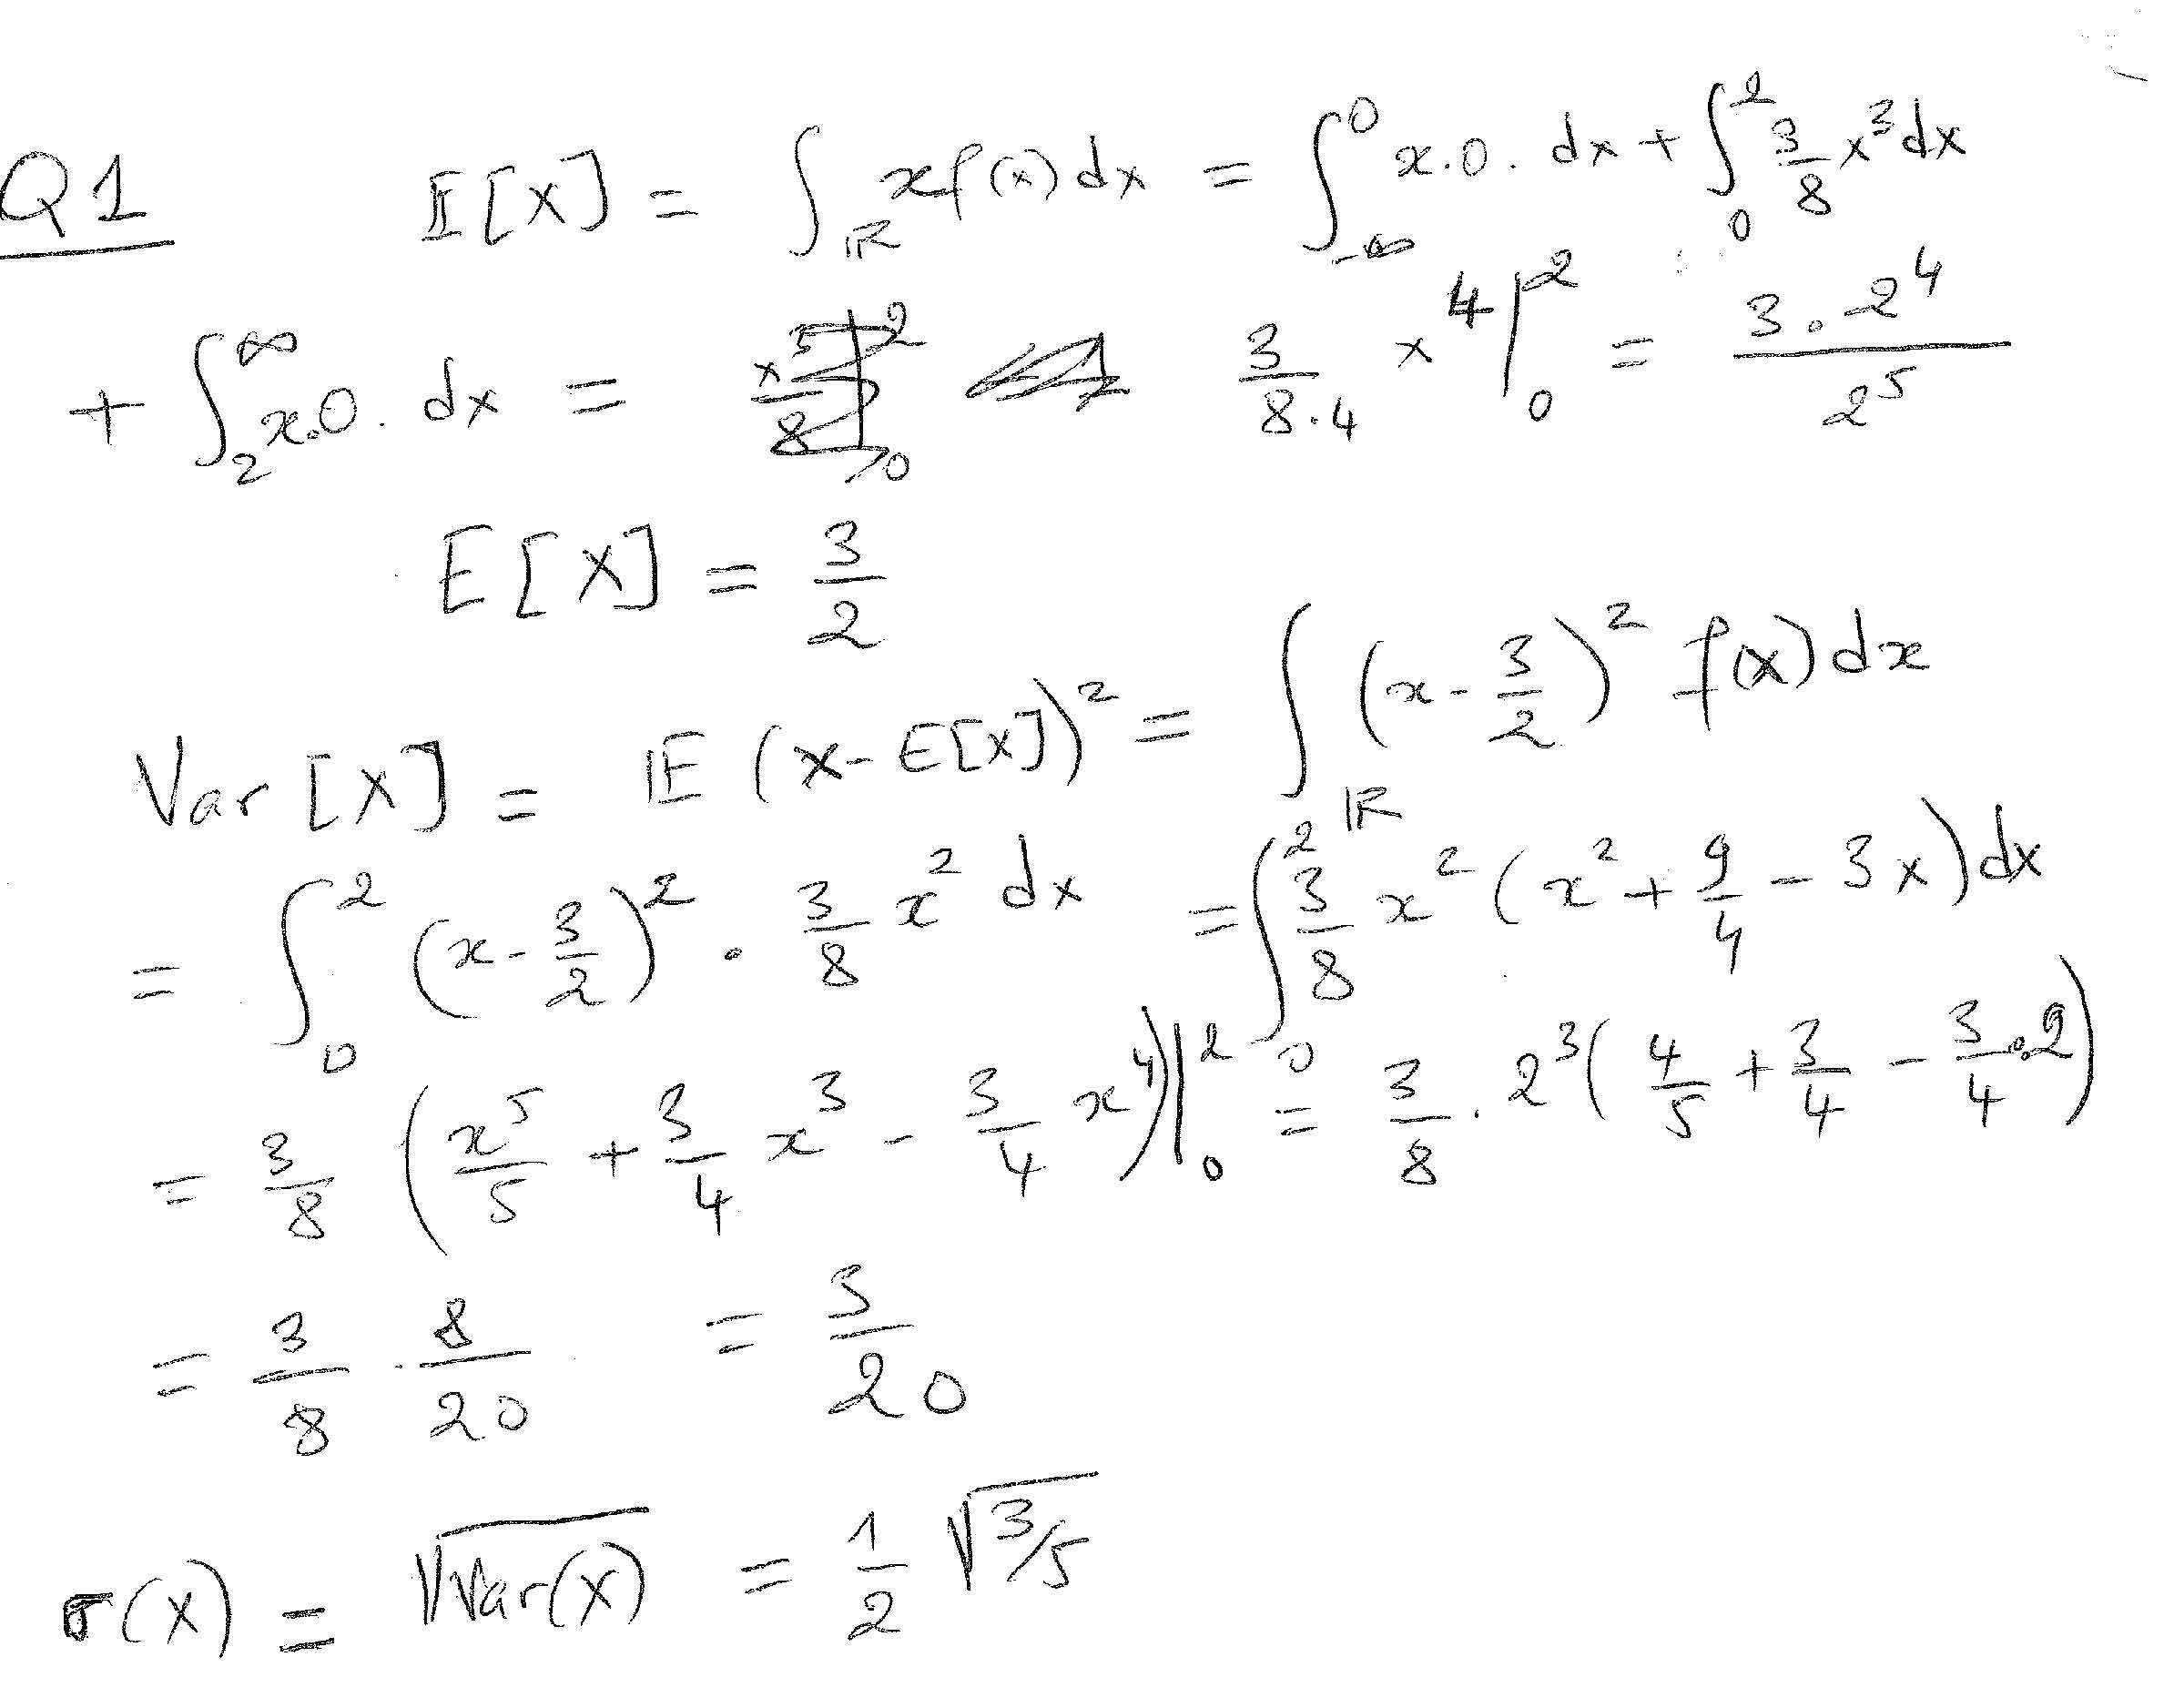 Q1 E[X] = ∫_ℝ x f(x) dx = ∫_{-∞}^0 x.0. dx + ∫_0^2 3/8 x^3 dx
+ ∫_2^∞ x.0. dx = 3/(8.4) x^4 |_0^2 = (3.2^4)/2^5
E[X] = 3/2
Var[X] = E(X-E[X])^2 = ∫_ℝ (x-3/2)^2 f(x) dx
= ∫_0^2 (x-3/2)^2 . 3/8 x^2 dx = ∫_0^2 3/8 x^2 (x^2 + 9/4 - 3x) dx
= 3/8 (x^5/5 + 3/4 x^3 - 3/4 x^4)|_0^2 = 3/8 . 2^3 (4/5 + 3/4 - 3/4 .2)
= 3/8 . 8/20 = 3/20
σ(X) = √Var(X) = 1/2 √3/5